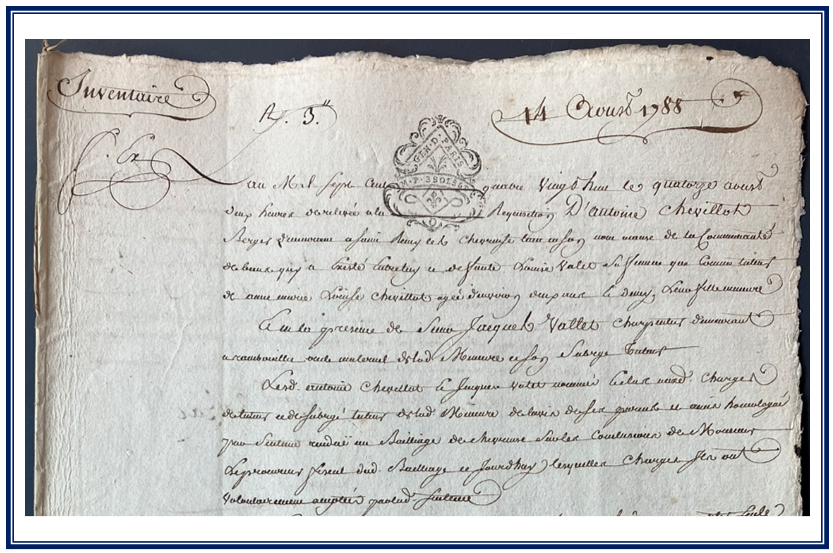 Inventaire
14 Aoust 1788
GEN. D. PARIS
Lan Mil Sept Cent quatre Vingt huit le quatorze aoust
deux heures de relevée a la Requisition D'antoine Chevillot
Berger demeurant a saint Remy les Chevreuse tant en son nom a cause de la Communauté
de biens qui a Existé Entre luy et deffunte Louise Valet sa femme que Comme tuteur
de anne marie Louise Chevillot agée d'environ deux ans et demy, Leur fille mineure
En la presence de Simon Jacques Vallet Charpentier demeurant
a rambouillet oncle maternel de lad. Mineure et son Subrogé Tuteur
Lesd. antoine Chevillot et Jacques Valet nommés et elus auxd. Charges
de tuteur et de subrogé tuteur de lad. Mineure de lavis de ses parents et amis homologué
par Sentence rendue au Bailliage de Chevreuse sur les Conclusions de Monsieur
Le procureur fiscal dud. Bailliage ce Jourdhuy lesquelles Charges ils ont
volontairement acceptées par lad. Sentence